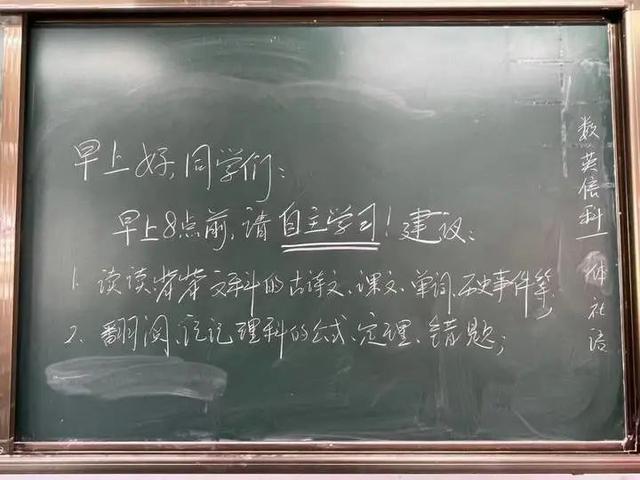 早上好,同学们:
早上8点前,请自主学习!建议:
1. 读读背背文科的古诗文、课文、单词、历史事件等;
2. 翻阅、记记理科的公式、定理、错题;
数英信科一体社语